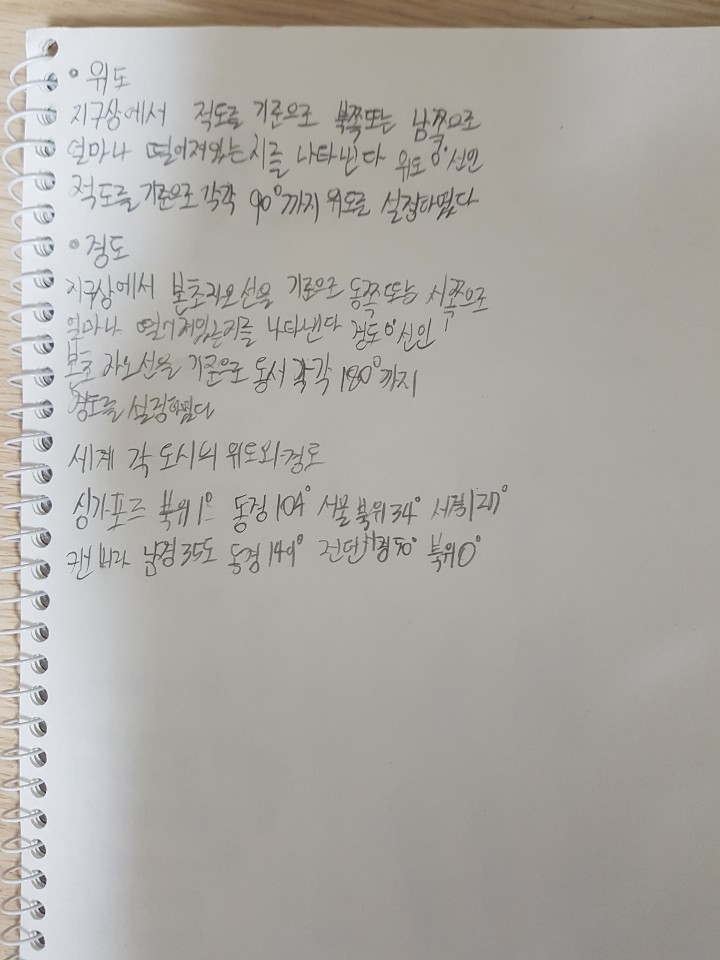 • 위도
지구상에서 적도를 기준으로 북쪽또는 남쪽으로
얼마나 떨어져있는지를 나타낸다 위도 0°선인
적도를 기준으로 각각 90°까지 위도를 설정하였다
• 경도
지구상에서 본초자오선을 기준으로 동쪽또는 서쪽으로
얼마나 떨어져있는지를 나타낸다 경도 0°선인
본초 자오선을 기준으로 동서 각각 180°까지
경도를 설정하였다
세계 각 도시의 위도와 경도
싱가포르 북위 1° 동경 104° 서울 북위 34° 서경 127°
캔버라 남경 35도 동경 149° 런던 서경 50° 북위 0°